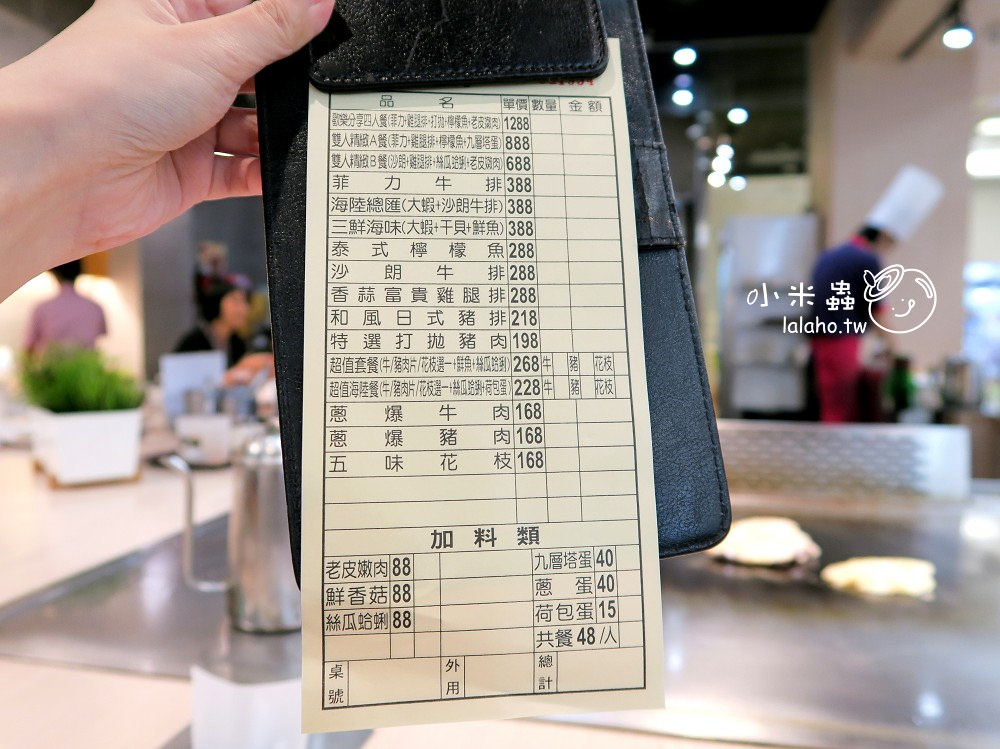 品名 單價 數量 金額
歡樂分享四人餐(菲力+雞腿排+打拋+檸檬魚+老皮嫩肉) 1288
雙人精緻A餐(菲力+雞腿排+檸檬魚+九層塔蛋) 888
雙人精緻B餐(沙朗+雞腿排+絲瓜蛤蜊+老皮嫩肉) 688
菲力牛排 388
海陸總匯(大蝦+沙朗牛排) 388
三鮮海味(大蝦+干貝+鮮魚) 388
泰式檸檬魚 288
沙朗牛排 288
香蒜富貴雞腿排 288
和風日式豬排 218
特選打拋豬肉 198
超值套餐(牛/豬肉片/花枝選一+鮮魚+絲瓜蛤蜊) 268 牛 豬 花枝
超值海陸餐(牛/豬肉片/花枝選一+絲瓜蛤蜊+荷包蛋) 228 牛 豬 花枝
蔥爆牛肉 168
蔥爆豬肉 168
五味花枝 168
加料類
老皮嫩肉 88 九層塔蛋 40
鮮香菇 88 蔥蛋 40
絲瓜蛤蜊 88 荷包蛋 15
共餐 48/人
桌號 外用 總計
小米蟲
lalaho.tw